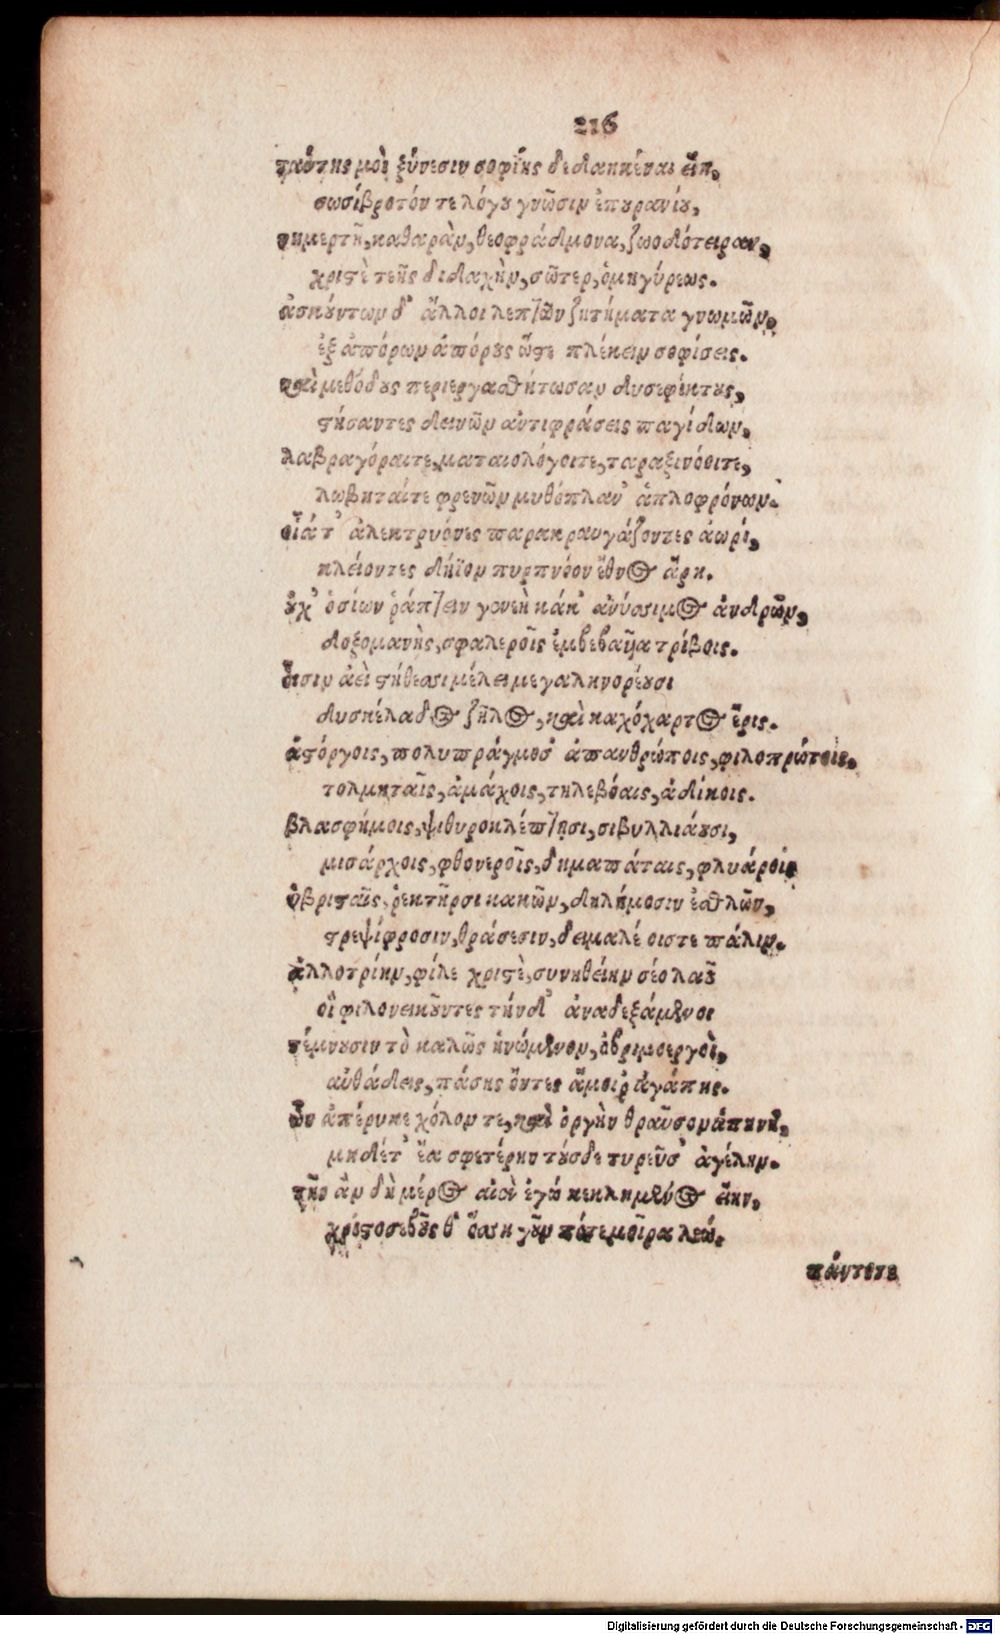 216
ταύτης μοὶ ξύνεσιν σοφίης δεδαηκέναι εἴη,
σωσίβροτόν τε λόγου γνῶσιν ἐπουρανίου,
νημερτῆ, καθαρὰν, θεοφράδμονα, ζωοδότειραν,
χριστὲ τεῆς διδαχὴν, σῶτερ, ὁμηγύρεως.
ἀσκούντων δ' ἄλλοι λεπτῶν ζητήματα γνωμῶν,
ἐξ ἀπόρων ἀπόρους ὥστε πλέκειν σοφίσεις.
καὶ μεθόδους περιεργασθήτωσαν δυσεφίκτους,
στήσαντες δεινῶν ἀντιφράσεις παγίδων,
λαβραγόραιτε, ματαιολόγοιτε, ταραξινόοιτε,
λωβηταίτε φρενῶν μυθόπλαν' ἁπλοφρόνων.
οἷά τ' ἀλεκτρυόνες παρακραυγάζοντες ἀωρί,
κλείοντες δήϊον πυρπνόον ἔθνος ἄρη.
οὐχ' ὁσίων ῥάπτειν γονεὴ κάκ' ἀνύσιμος ἀνδρῶν,
δοξομανὴς, σφαλεροῖς ἐμβεβαῦῖα τρίβοις.
οἷσιν ἀεὶ στήθεσι μέλει μεγαληνορέουσι
δυσκέλαδος ζῆλος, καὶ κακόχαρτος ἔρις.
ἀστόργοις, πολυπράγμοσ' ἀπανθρώποις, φιλοπρώτοις,
τολμηταῖς, ἀμάχοις, τηλεβόαις, ἀδίκοις.
βλασφήμοις, ψιθυροκλέπτῃσι, σιβυλλιάουσι,
μισάρχοις, φθονεροῖς, δημαπάταις, φλυάροις
ὑβρισταῖς, ῥεκτῆρσι κακῶν, δηλήμοσιν ἐσθλῶν,
στρεψίφροσιν, θράσεσιν, δειμαλέοιστε πάλιν.
ἀλλοτρίην, φίλε χριστὲ, συνηθείην σέο λαοῦ
οἳ φιλονεικοῦντες τήνδ' ἀναδεξάμενοι
τέμνουσιν τὸ καλῶς ἡνώμενον, ὀβριμοεργοὶ,
αὐθάδεις, πάσης ὄντες ἄμοιρ' ἀγάπης.
ὧν ἀπέρυκε χόλον τε, καὶ ὀργὴν θραῦσον ἀπηνῆ,
μηδέτ' ἔα σφετέρην τούσδε τυρεῦσ' ἀγέλην.
τῆς ἂν δὴ μέρος αἰεὶ ἐγώ κεκλημένος εἴην,
χριστοσεβοῦς θ' ὅση γοῦν πότε μοῖρα λεώ.
πάντοτε
Digitalisierung gefördert durch die Deutsche Forschungsgemeinschaft - DFG